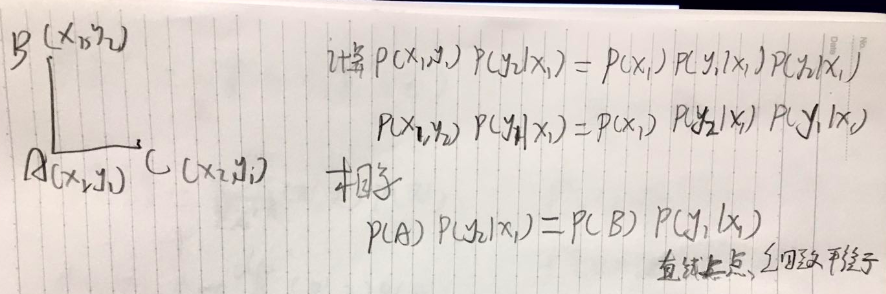 B (x₁,y₂)
A(x₁,y₁) C (x₂,y₁)
计算 P(x₁,y₁) P(y₂|x₁) = P(x₁) P(y₁|x₁) P(y₂|x₁)
P(x₁,y₂) P(y₁|x₁) = P(x₁) P(y₂|x₁) P(y₁|x₁)
相等
P(A) P(y₂|x₁) = P(B) P(y₁|x₁)
直线上点、细致平稳